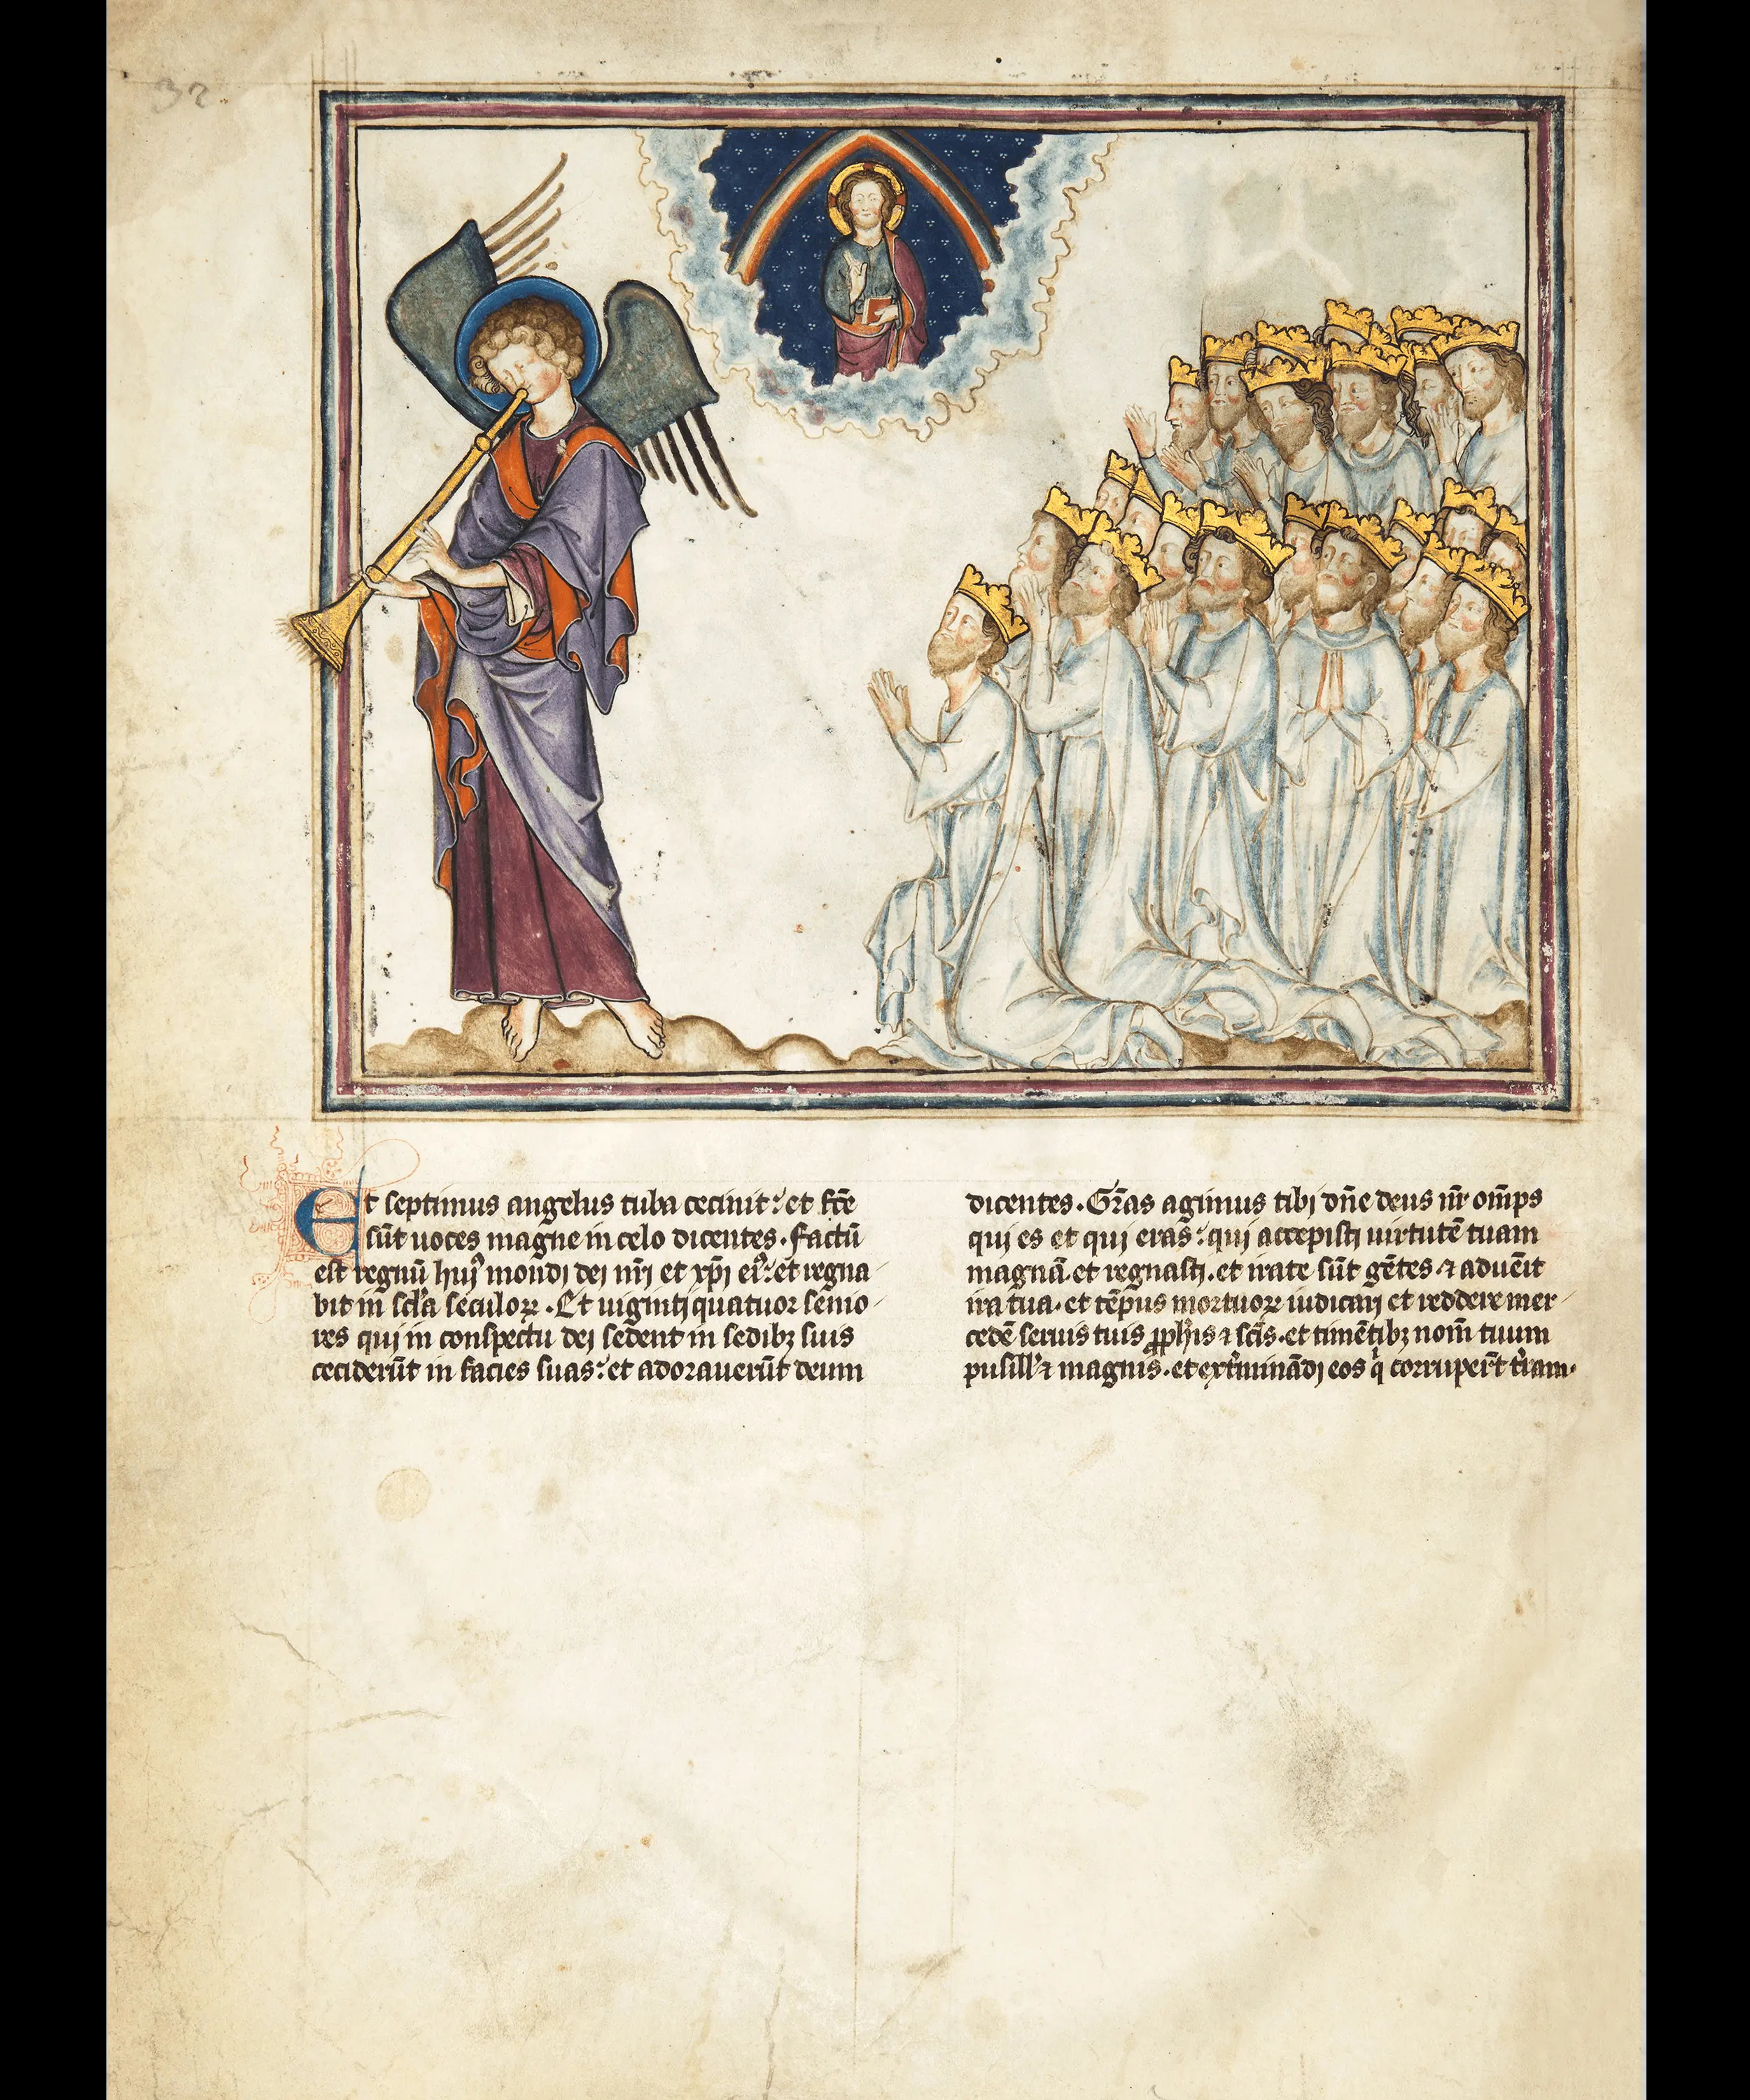 32
Et septimus angelus tuba cecinit: et fc̄e
sūt uoces magne in celo dicentes. Factū
est regnū huiꝰ mondi dei nr̄i et xp̄i eiꝰ: et regna
bit in scl̄a seculoꝝ. Et uiginti quatuor senio
res qui in conspectu dei sedent in sedibꝫ suis
ceciderūt in facies suas: et adorauerūt deum
dicentes. Gr̄as agimus tibi dn̄e deus nr̄ om̄ps
qui es et qui eras: qui accepisti uirtutē tuam
magnā. et regnasti. et irate sūt gētes ⁊ aduēit
ira tua. et tēpus mortuoꝝ iudicari et reddere mer
cedē seruis tuis ꝓph̄is ⁊ sc̄is. et timētibꝫ nom̄ tuum
pusill̓ ⁊ magnis. et ext̓mināđi eos q̓ corruper̄t t̓ram.